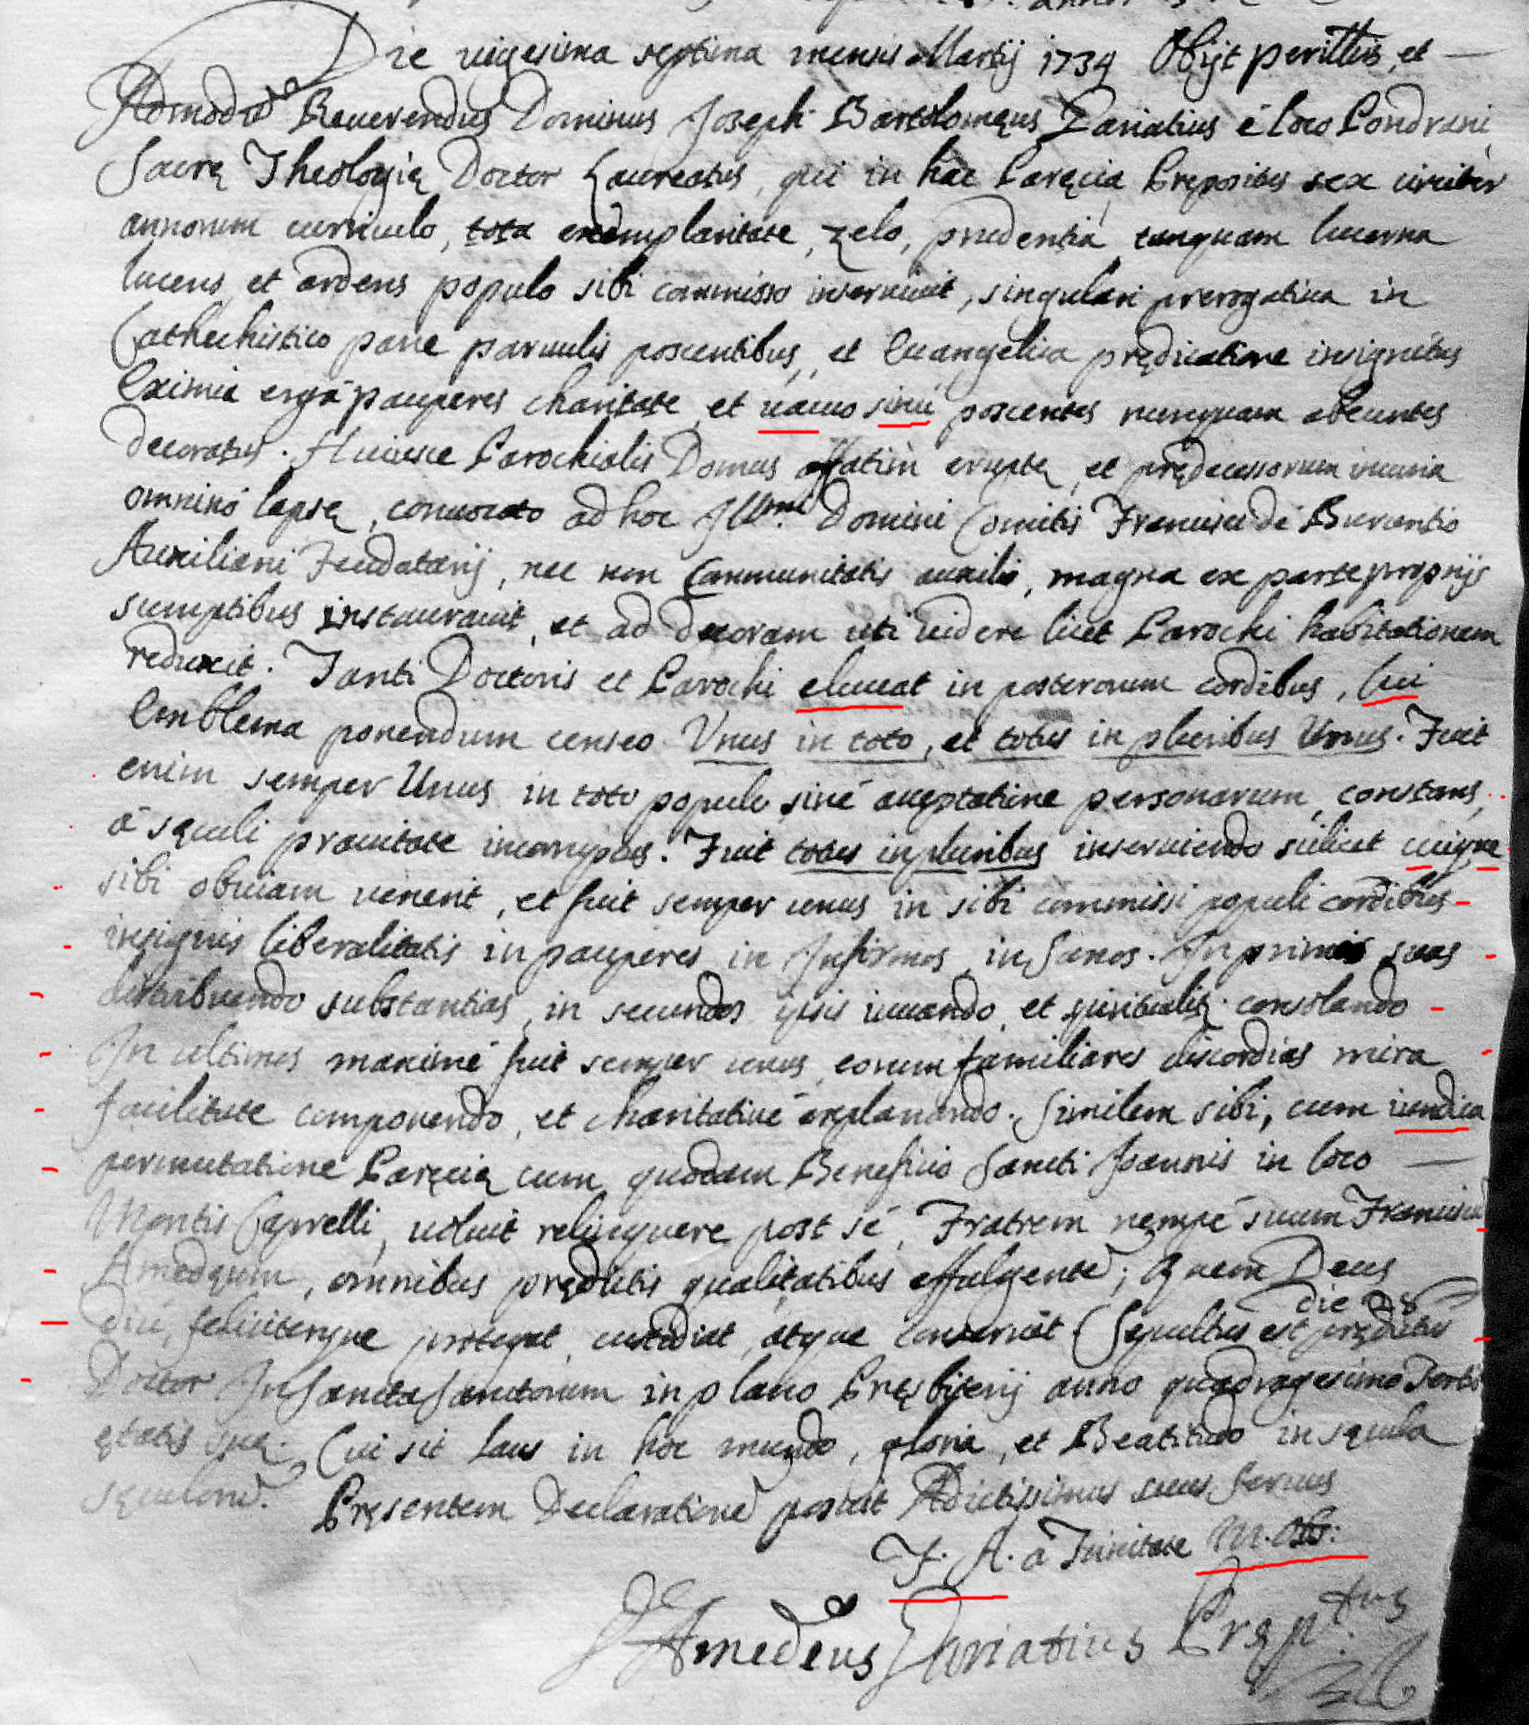 Die uigesima septima mensis Martij 1734 Obijt perill:is et —
Admodū Reuerendus Dominus Joseph Bartolomęus Dariatius è loco Londrani
Sacrę Theologię Doctor Laureatus, qui in hac Paręcia Prępositus sex circiter
annorum curriculo, tota exemplaritate, zelo, prudentia tanquam lucerna
lucens, et ardens populo sibi commisso inseruiuit, singulari prerogatiua in
Cathechistico pane paruulis poscentibus, et Euangelica prędicatione insignitus
Eximia ergà pauperes charitate, et uacuo sinù poscentes nunquam abeuntes
decoratus. Huiusce Parochialis Domus affatìm eruptę, et prędecessorum incuria
omninò lapsę, conuocato ad hoc Ill:mi Domini Comitis Francisci dè Burontio
Auxiliani Feudatarij, nec non Communitatis auxilio, magna ex parte proprijs
sumptibus instaurauit, et ad decoram uti uidere licet Parochi habitationem
reduxit. Tanti Doctoris et Parochi eluceat in posterorum cordibus, Cui
Emblema ponendum censeo Vnus in toto, et totus in pluribus Vnus. Fuit
enim semper Unus in toto populo sinè acceptatione personarum, constans,
à sęculi prauitate incorruptus. Fuit totus in pluribus inseruiendo scilicet cuique
sibi obuiam uenerit, et fuit semper unus in sibi commissi populi cordibus
insignis liberalitatis in pauperes, in Infirmos, in Sanos. In primis suas
distribuendo substantias, in secundos ipsis iuuando, et spiritualitę consolando
In ultimos maximè fuit semper unus, eorum familiares discordias mira
facilitate componendo, et charitatiuè explanando. Similem sibi, cum iuridica
permutatione Paręcię cum quodam Beneficio Sancti Joannis in loco —
Montis Caprelli, uoluit relinquere post sè, Fratrem nempè suum Franciscū
Amedęum, omnibus prędictis qualitatibus effulgentē; Quem Deus
diù, feliciterque protegat, custodiat, atque conseruet (Sepultus est prędictus
die 28
Doctor In Sancta Sanctorum in plano Pręsbiterij anno quadragesimo Tertio
ętatis suę. Cui sit Laus in hoc mundo, gloria, et Beatitudo in sęcula
sęculorū. Pręsentem Declarationē posuit Adictissimus suus Seruus
F. A. à Trinitate M. Obs:
Amedeus Dariatius Pręp:tus